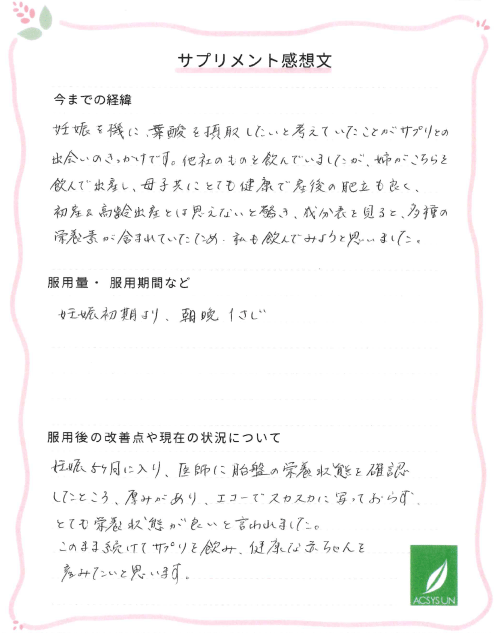 サプリメント感想文
今までの経緯
妊娠を機に、葉酸を摂取したいと考えていたことがサプリとの
出会いのきっかけです。他社のものを飲んでいましたが、姉がこちらを
飲んで出産し、母子共にとても健康で産後の肥立も良く、
初産&高齢出産とは思えないと聞き、成分表を見ると、多種の
栄養素が含まれていたため、私も飲んでみようと思いました。
服用量・ 服用期間など
妊娠初期より、朝晩 1さじ
服用後の改善点や現在の状況について
妊娠5ヶ月に入り、医師に胎盤の栄養状態を確認
したところ、厚みがあり、エコーでスカスカに写っておらず、
とても栄養状態が良いと言われました。
このまま続けてサプリを飲み、健康な赤ちゃんを
産みたいと思います。
ACSYSUN